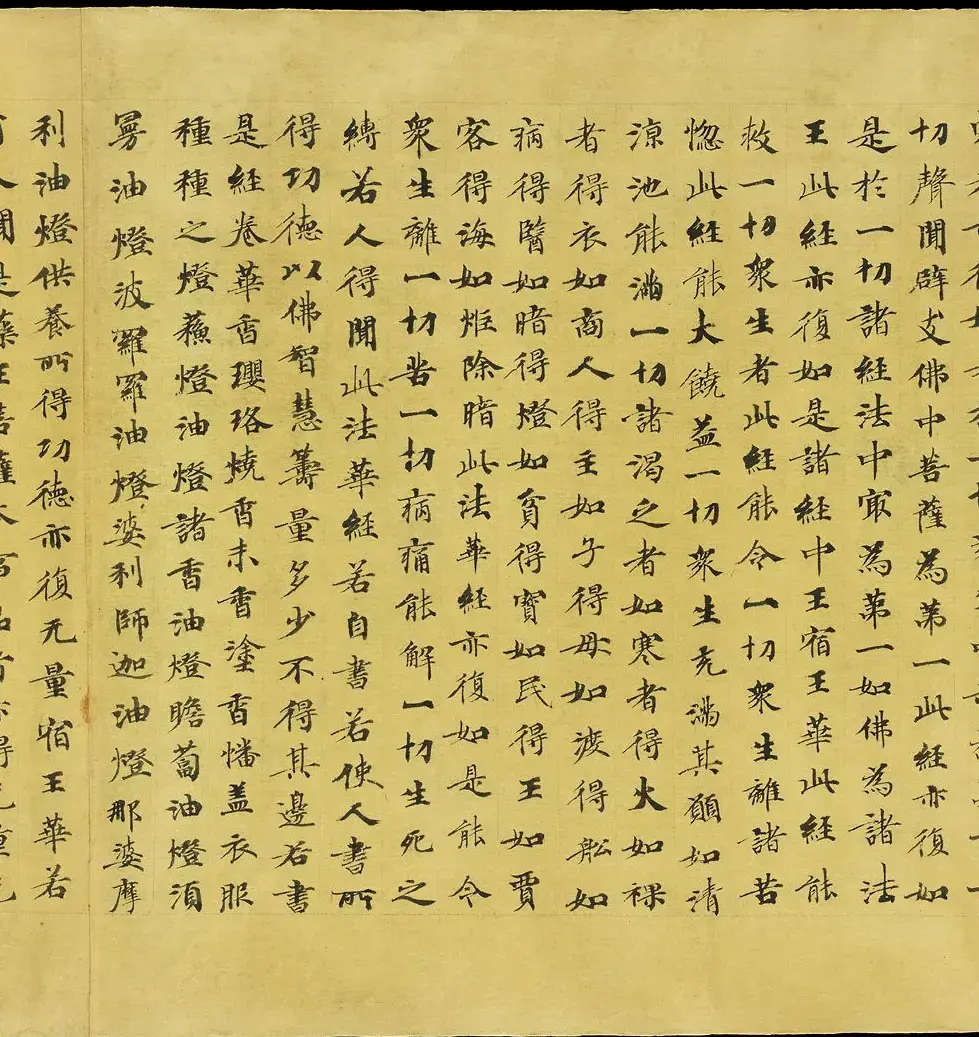 切聲聞辟支佛中菩薩為第一此經亦復如
是於一切諸經法中冣為第一如佛為諸法
王此經亦復如是諸經中王宿王華此經能
救一切衆生者此經能令一切衆生離諸苦
惚此經能大饒益一切衆生充滿其願如清
涼池能滿一切諸渴乏者如寒者得火如裸
者得衣如商人得主如子得母如渡得舩如
病得醫如暗得燈如貧得寶如民得王如賈
客得海如炬除暗此法華經亦復如是能令
衆生離一切苦一切病痛能解一切生死之
縛若人得聞此法華經若自書若使人書所
得功德以佛智慧籌量多少不得其邊若書
是經卷華香瓔珞燒香末香塗香幡盖衣服
種種之燈蘇燈油燈諸香油燈瞻蔔油燈湏
曼油燈波羅羅油燈婆利師迦油燈那婆摩
利油燈供養所得功德亦復无量宿王華若
人聞是藥王菩薩